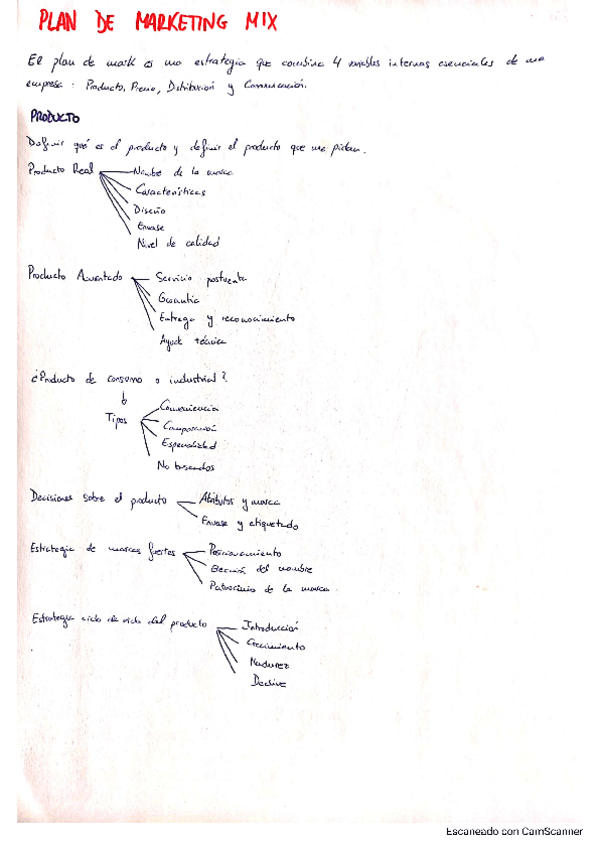 PLAN DE MARKETING MIX
El plan de mark es una estrategia que combina 4 variables internas esenciales de una
empresa: Producto, Precio, Distribución y Comunicación.
PRODUCTO
Definir qué es el producto y definir el producto que me pidan.
Producto Real
Nombre de la marca
Características
Diseño
Envase
Nivel de calidad
Producto Aumentado
Servicio postventa
Garantía
Entrega y reconocimiento
Ayuda técnica
¿Producto de consumo o industrial?
Tipos
Conveniencia
Comparación
Especialidad
No buscados
Decisiones sobre el producto
Atributos y marca
Envase y etiquetado
Estrategia de marcas fuertes
Posicionamiento
Elección del nombre
Patrocinio de la marca.
Estrategia ciclo de vida del producto
Introducción
Crecimiento
Madurez
Declive
Escaneado con CamScanner